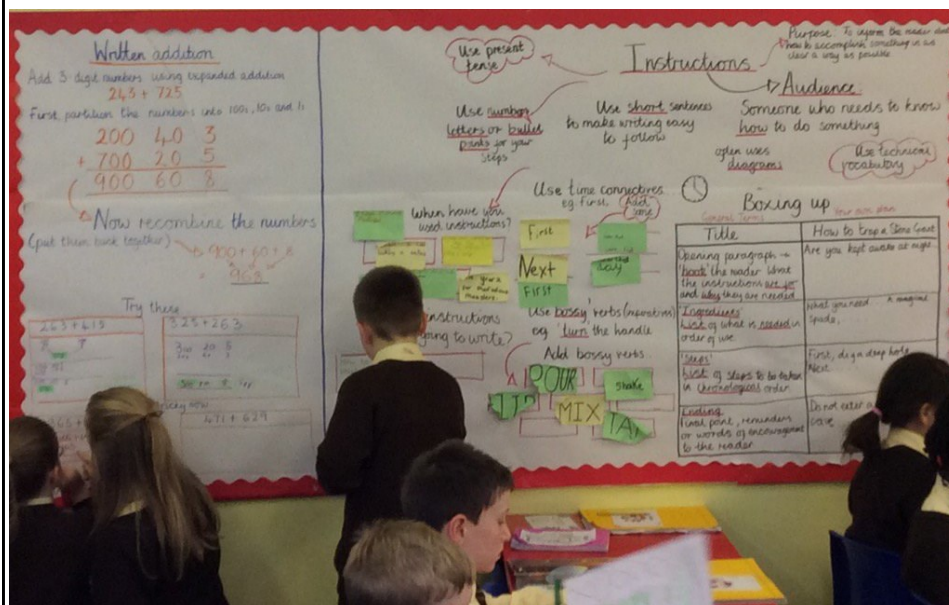 Written addition
Add 3 digit numbers using expanded addition
243 + 725
First partition the numbers into 100s, 10s and 1s
200 40 3
+ 700 20 5
900 60 8
Now recombine the numbers
(put them back together)
900 + 60 + 8
= 968
Try these
263 + 615
325 + 263
471 + 629
Use present
tense
Instructions
Purpose: To inform the reader
how to accomplish something in as
clear a way as possible
Audience
Someone who needs to know
how to do something
Use numbers
letters or bullet
points for your
steps
Use short sentences
to make writing easy
to follow
often uses
diagrams
Use technical
vocabulary
Use time connectives
eg. First,
Add
some
When have you
used instructions?
First
Next
First
instructions
going to write?
Use 'bossy' verbs (imperatives)
eg 'turn' the handle
Add bossy verbs
POUR
shake
MIX
Boxing up
General Terms
Your own plan
Title
How to trap a Stone Giant
Opening paragraph →
'hook' the reader. What
the instructions are for
and why they are needed
Are you kept awake at night
'Ingredients'
List of what is needed in
order of use
What you need
a magical
spade,
'Steps'
List of steps to be taken
in chronological order
First, dig a deep hole
Next
Ending
Final point, reminders
or words of encouragement
to the reader
Do not enter a
cave